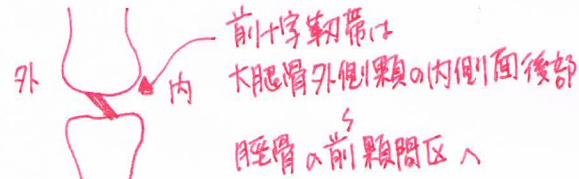 前十字靭帯は
外
内
大腿骨外側顆の内側面後部
脛骨の前顆間区へ